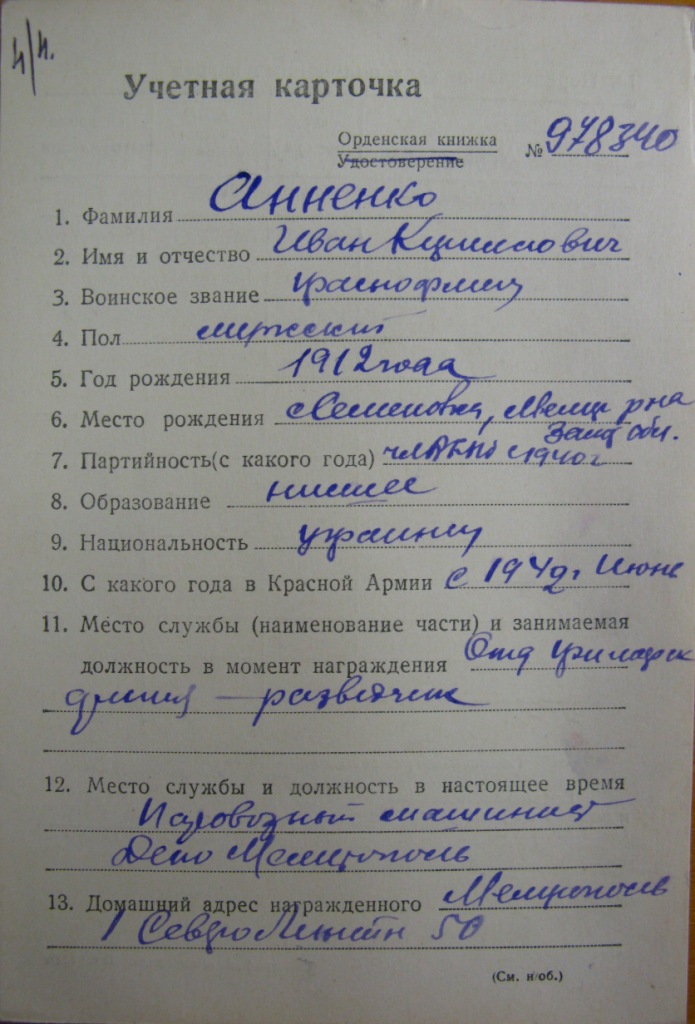 4/4.
Учетная карточка
Орденская книжка
Удостоверение
№ 978340
1. Фамилия Анненко
2. Имя и отчество Иван Кириллович
3. Воинское звание Краснофлец
4. Пол мужской
5. Год рождения 1912 года
6. Место рождения с Семеновка, Мелит р-на
Зап обл.
7. Партийность (с какого года) чл ВКПб с 1940 г
8. Образование низшее
9. Национальность украинец
10. С какого года в Красной Армии с 1942 г Июнь
11. Место службы (наименование части) и занимаемая
должность в момент награждения Отд
— разведчик
12. Место службы и должность в настоящее время
Паровозный машинист
Депо Мелитополь
13. Домашний адрес награжденного Мелитополь
50
(См. н/об.)